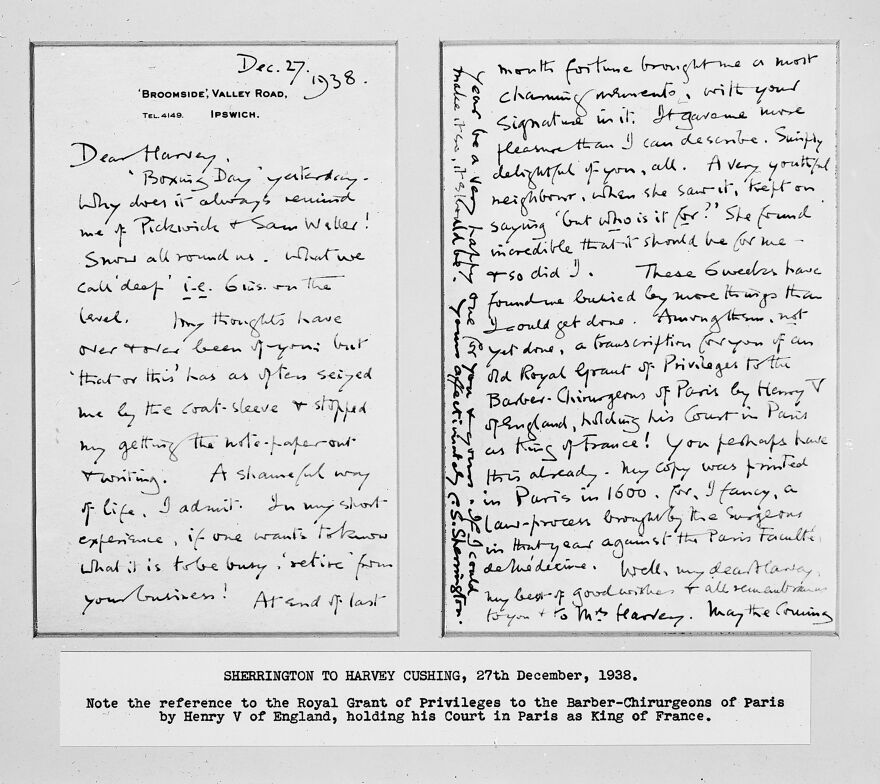 Dec. 27. 1938.
'BROOMSIDE', VALLEY ROAD,
TEL. 4149. IPSWICH.
Dear Harvey,
'Boxing Day' yesterday.
Why does it always remind
me of Pickwick & Sam Weller!
Snow all round us. What we
call 'deep' i.e. 6 ins. on the
level. My thoughts have
over & over been of you: but
'that or this' has as often seized
me by the coat-sleeve & stopped
my getting the note-paper out
& writing. A shameful way
of life, I admit. In my short
experience, if one wants to know
what it is to be busy, 'retire' from
your business! At end of last
month fortune brought me a most
charming memento, with your
signature in it. It gave me more
pleasure than I can describe. Simply
delightful of you, all. A very youthful
neighbour, when she saw it, kept on
saying 'but who is it for?' She found
incredible that it should be for me –
& so did I. These 6 weeks have
found me buried by more things than
I could get done. Among them, not
yet done, a transcription for you of an
old Royal Grant of Privileges to the
Barber-Chirurgeons of Paris by Henry V
of England, holding his Court in Paris
as King of France! You perhaps have
this already. My copy was printed
in Paris in 1600. for, I fancy, a
law-process brought by the Surgeons
in that year against the Paris Faculté
de Médecine. Well, my dear Harvey,
my best of good wishes & all remembrances
to you & to Mrs Harvey. May the coming
Year be a very happy one for you & yours. If I could
make it so, it should be! Yours affectionately C.S. Sherrington.
SHERRINGTON TO HARVEY CUSHING, 27th December, 1938.
Note the reference to the Royal Grant of Privileges to the Barber-Chirurgeons of Paris
by Henry V of England, holding his Court in Paris as King of France.